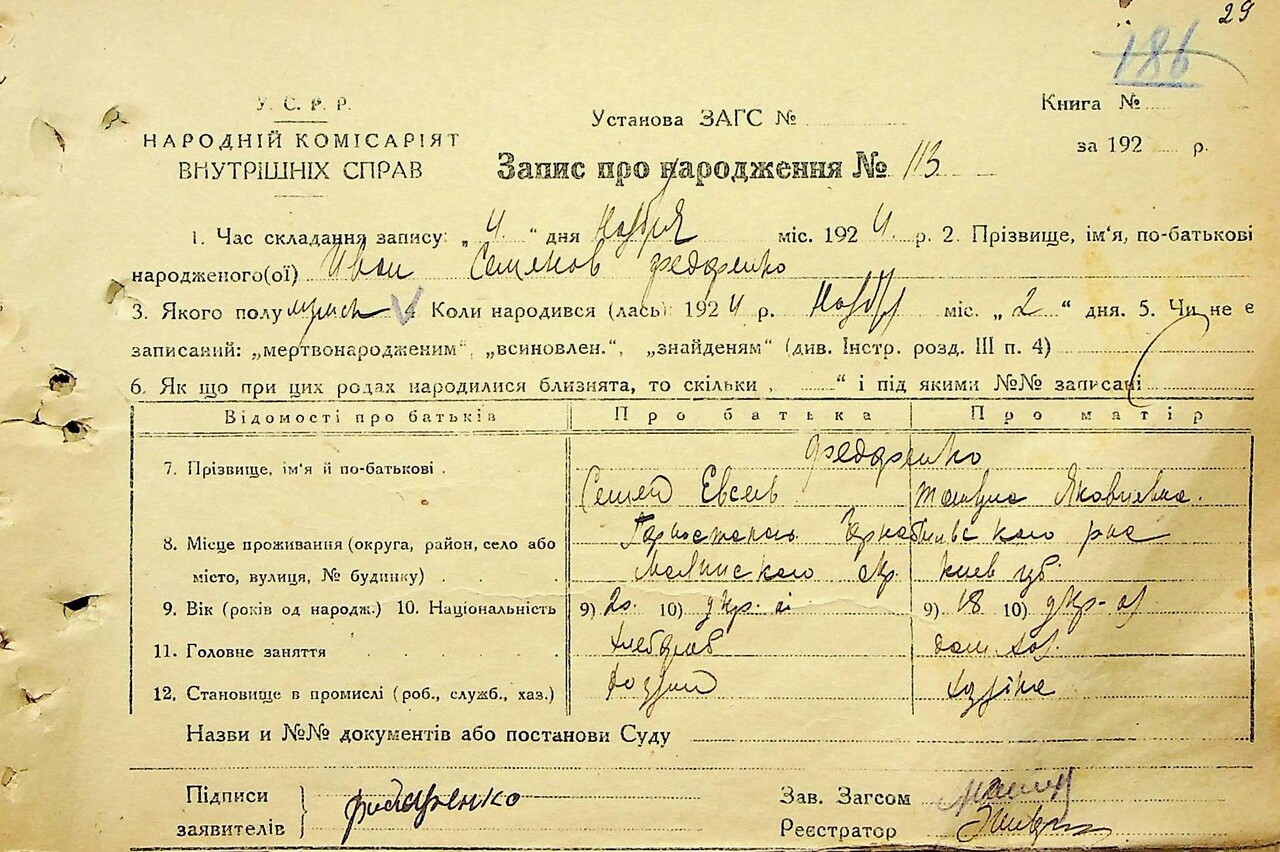 29
186
У. С. Р. Р.
НАРОДНІЙ КОМІСАРІЯТ
ВНУТРІШНІХ СПРАВ
Установа ЗАГС №
Книга №
за 192 р.
Запис про народження № 113
1. Час складання запису: „4“ дня Ноября міс. 1924 р. 2. Прізвище, ім'я, по-батькові
народженого(ої) Иван Семенов Федоренко
3. Якого полу мужск 4. Коли народився (лась) 1924 р. Нояб міс. „2“ дня. 5. Чи не є
записаний: „мертвонародженим“, „всиновлен.“, „знайденям“ (див. Інстр. розд. III п. 4)
6. Як що при цих родах народилися близнята, то скільки „ “ і під якими №№ записані
Відомості про батьків Про батька Про матір
7. Прізвище, ім'я й по-батькові . Федоренко
Семен Евсев Яковлевна.
8. Місце проживання (округа, район, село або Горностаполь Чернобильского рна
місто, вулиця, № будинку) . . . . Малинского окр. Киев губ.
9. Вік (років од народж.) 10. Національність 9) 20. 10) укр. 9) 18 10) укр-
11. Головне заняття . . . . . . хлебороб дом. хоз.
12. Становище в промислі (роб., служб., хаз.) хозяин
Назви и №№ документів або постанови Суду
Підписи
заявителів
Федоренко
Зав. Загсом
Реєстратор